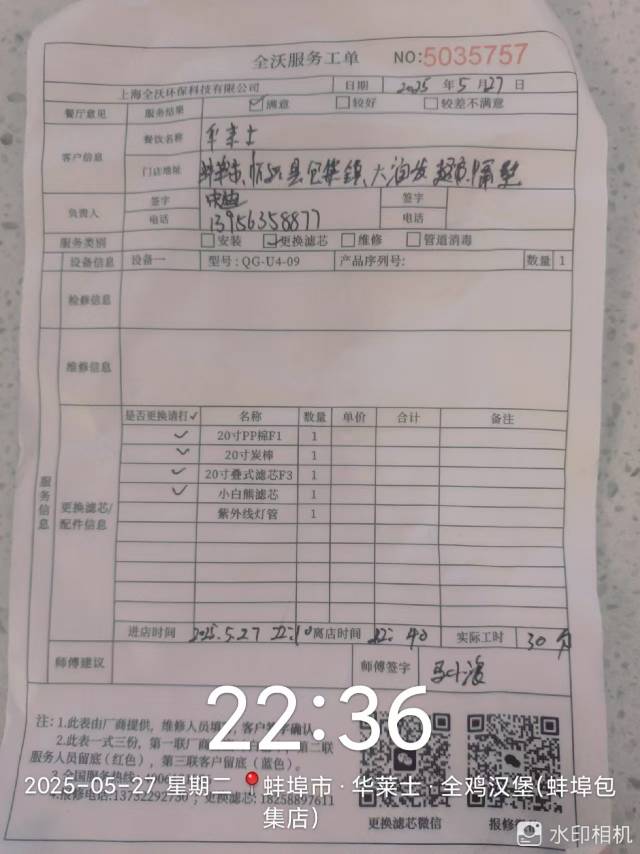 全沃服务工单 NO:5035757
上海全沃环保科技有限公司 日期 2025 年 5 月 27 日
餐厅意见 服务结果 ☑满意 □较好 □较差不满意
客户信息 餐饮名称 华莱士
门店地址 蚌埠市,怀远县包集镇,大润发超市隔壁
负责人 签字 签字
电话 13956358877 电话
服务类别 □安装 ☑更换滤芯 □维修 □管道消毒
设备信息 设备一 型号:QG-U4-09 产品序列号: 数量 1
检修信息
维修信息
服务信息
更换滤芯/配件信息
是否更换请打✓ 名称 数量 单价 合计 备注
✓ 20寸PP棉F1 1
✓ 20寸炭棒 1
✓ 20寸叠式滤芯F3 1
✓ 小白熊滤芯 1
紫外线灯管 1
进店时间 2025.5.27 22:10 离店时间 22:40 实际工时 30分
师傅建议 师傅签字
注:1.此表由厂商提供,维修人员填写,客户签字确认
2.此表一式三份,第一联厂商 第二联
服务人员留底(红色),第三联客户留底(蓝色)。
3.全国服务热线
4.报修电话:13732292730,更换滤芯:18258897611
更换滤芯微信 报修
22:36
2025-05-27 星期二 蚌埠市·华莱士·全鸡汉堡(蚌埠包
集店)
水印相机